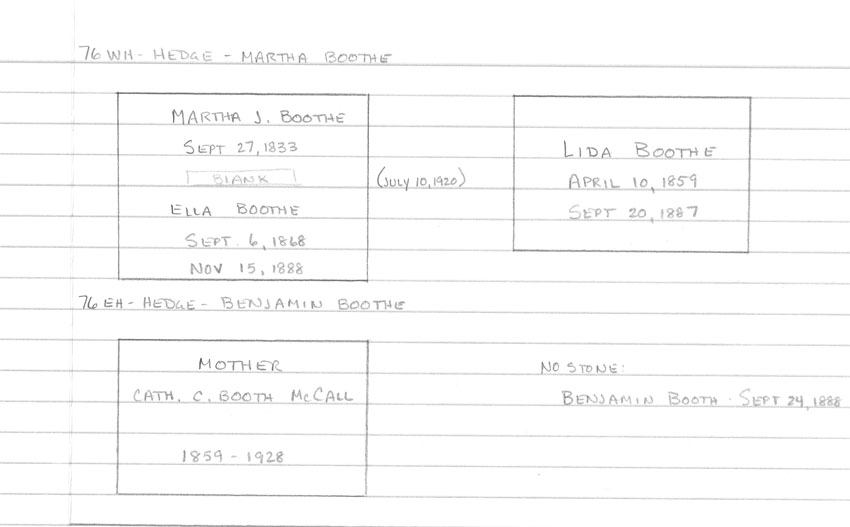 76 WH - HEDGE - MARTHA BOOTHE
MARTHA J. BOOTHE
SEPT 27, 1833
BLANK
(JULY 10, 1920)
ELLA BOOTHE
SEPT. 6, 1868
NOV 15, 1888
LIDA BOOTHE
APRIL 10, 1859
SEPT 20, 1887
76 EH - HEDGE - BENJAMIN BOOTHE
MOTHER
CATH. C. BOOTH McCALL
1859 - 1928
NO STONE:
BENJAMIN BOOTH - SEPT 24, 1888